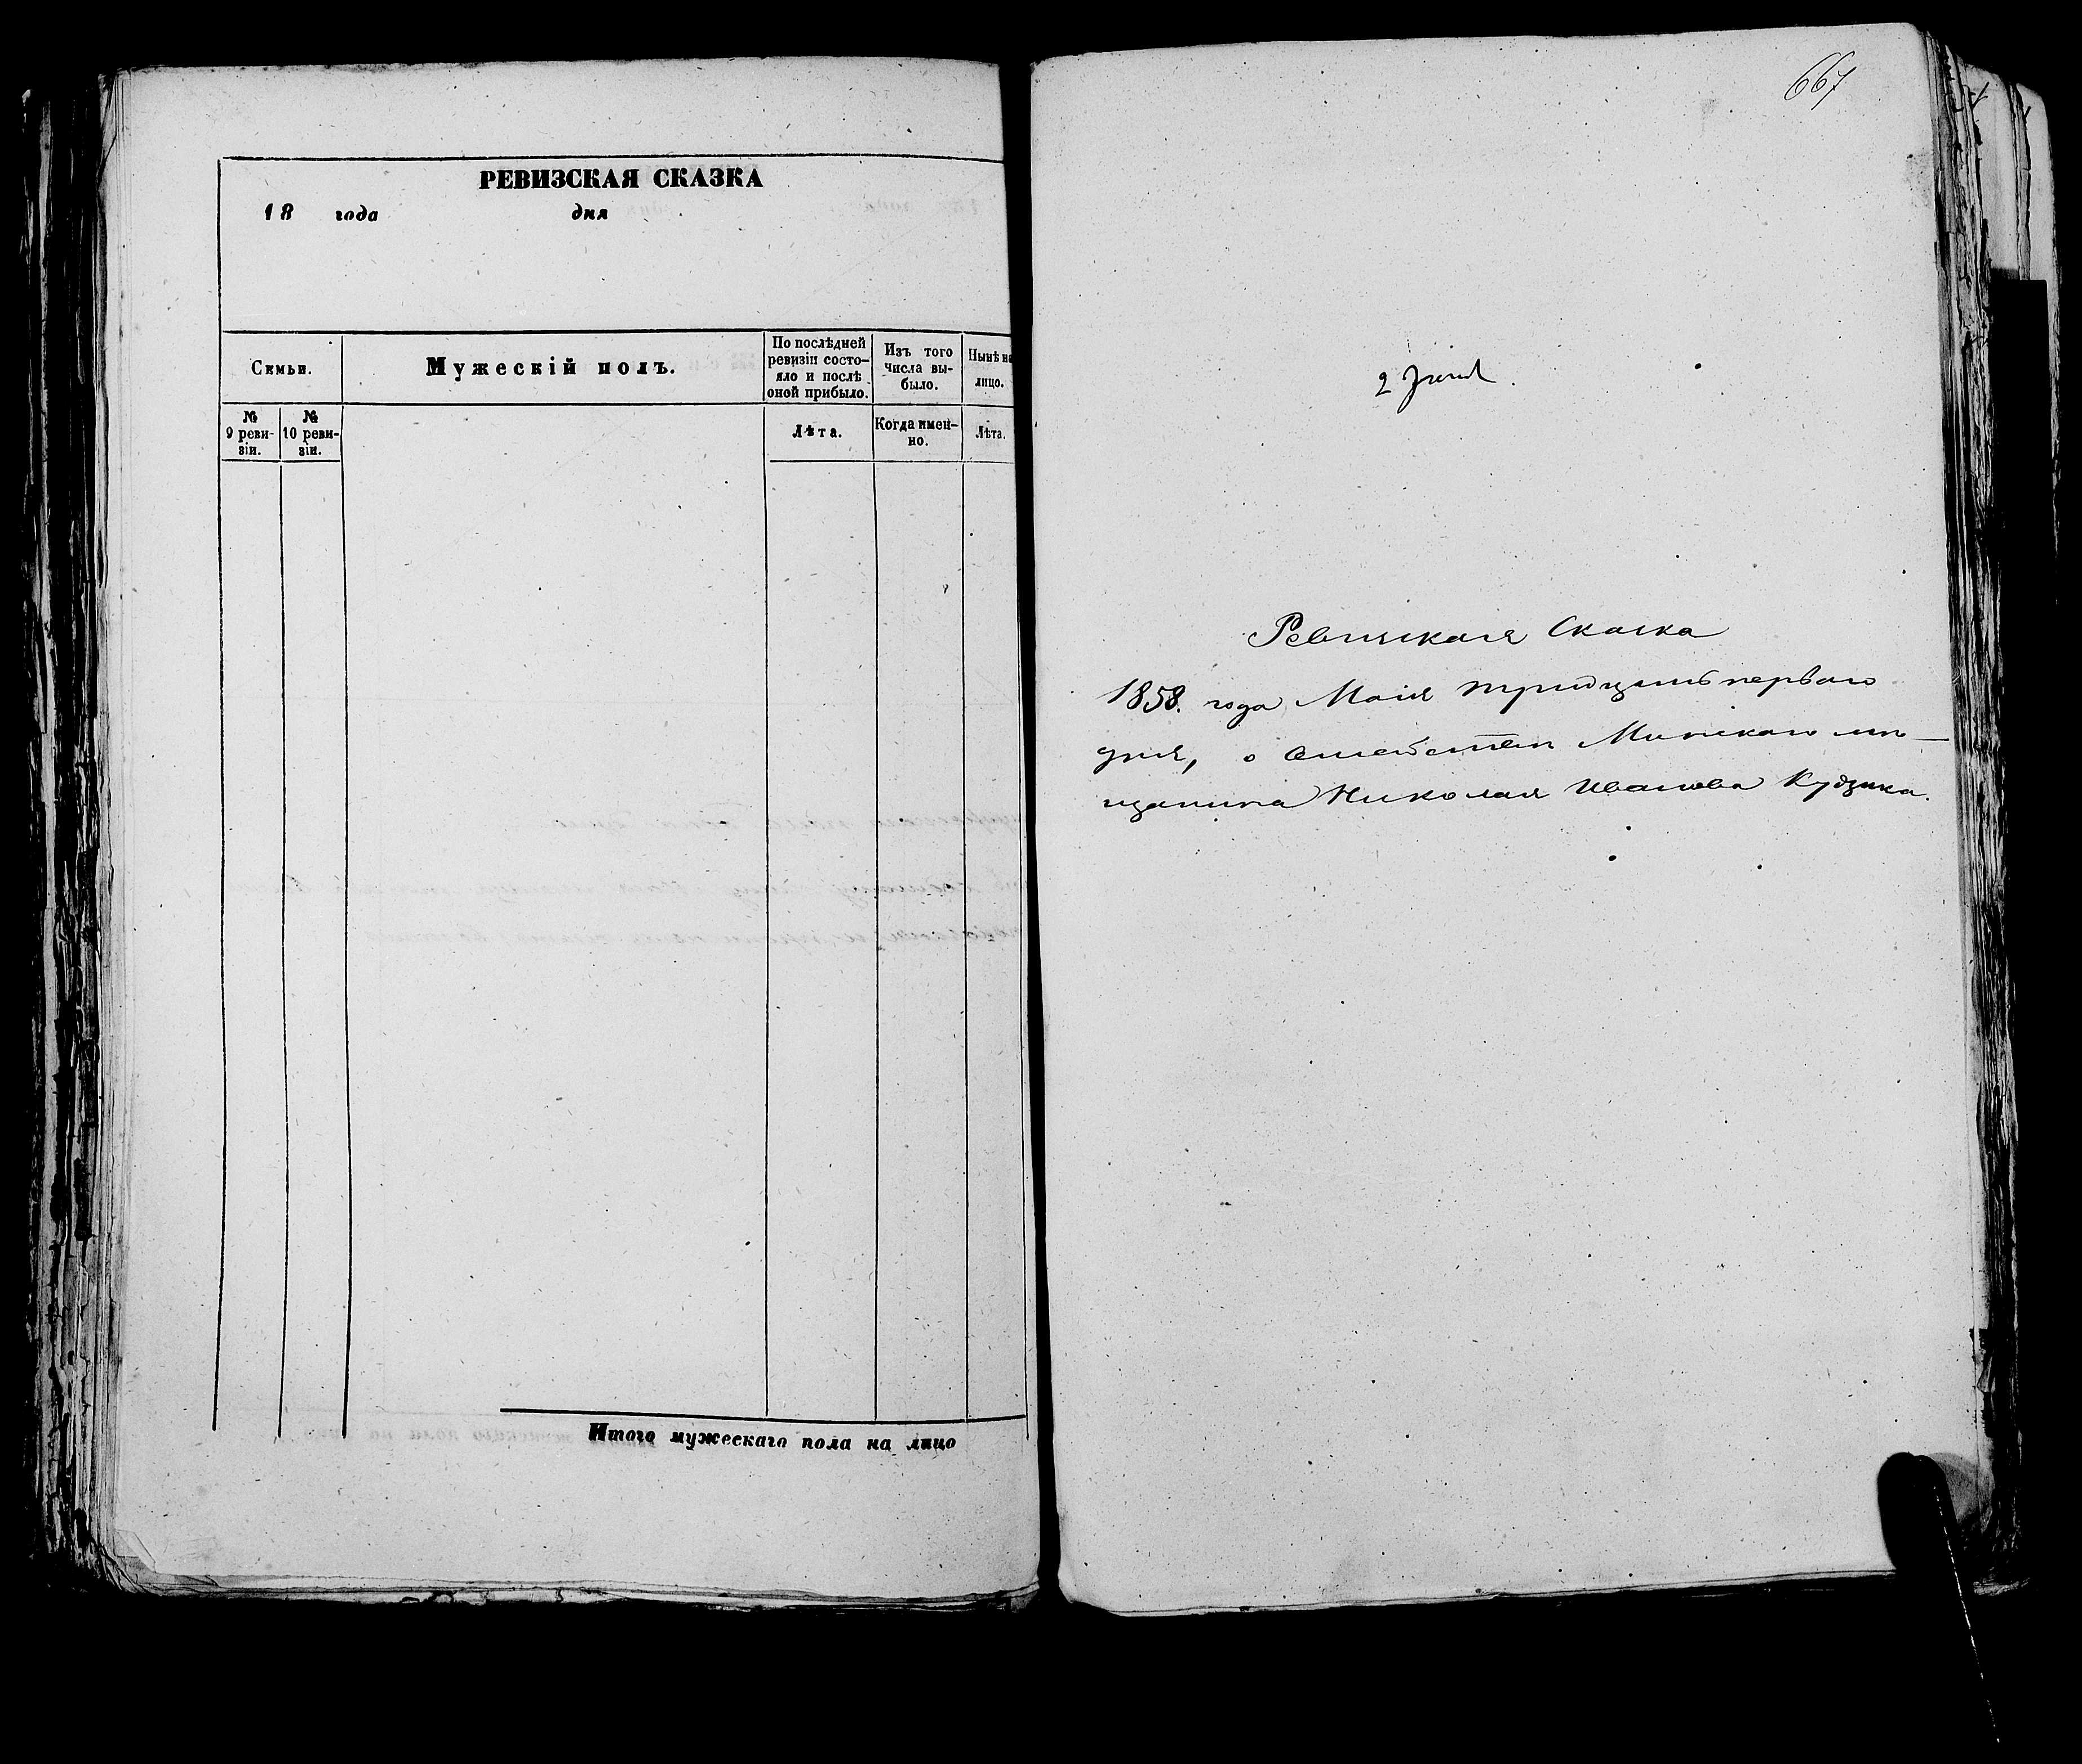 РЕВИЗСКАЯ СКАЗКА
18 года дня
Семьи.
Мужескій полъ.
По послѣдней
ревизіи состо-
яло и послѣ
оной прибыло.
Изъ того
числа вы-
было.
Нынѣ на
лицо.
№
9 реви-
зіи.
№
10 реви-
зіи.
Лѣта.
Когда имен-
но.
Лѣта.
Итого мужескаго пола на лицо
667
2
Ревизская Сказка
1858. года Маія тридцать перваго
дня, о Семействѣ Минскаго мѣ-
щанина Николая Иванова Кудзика.